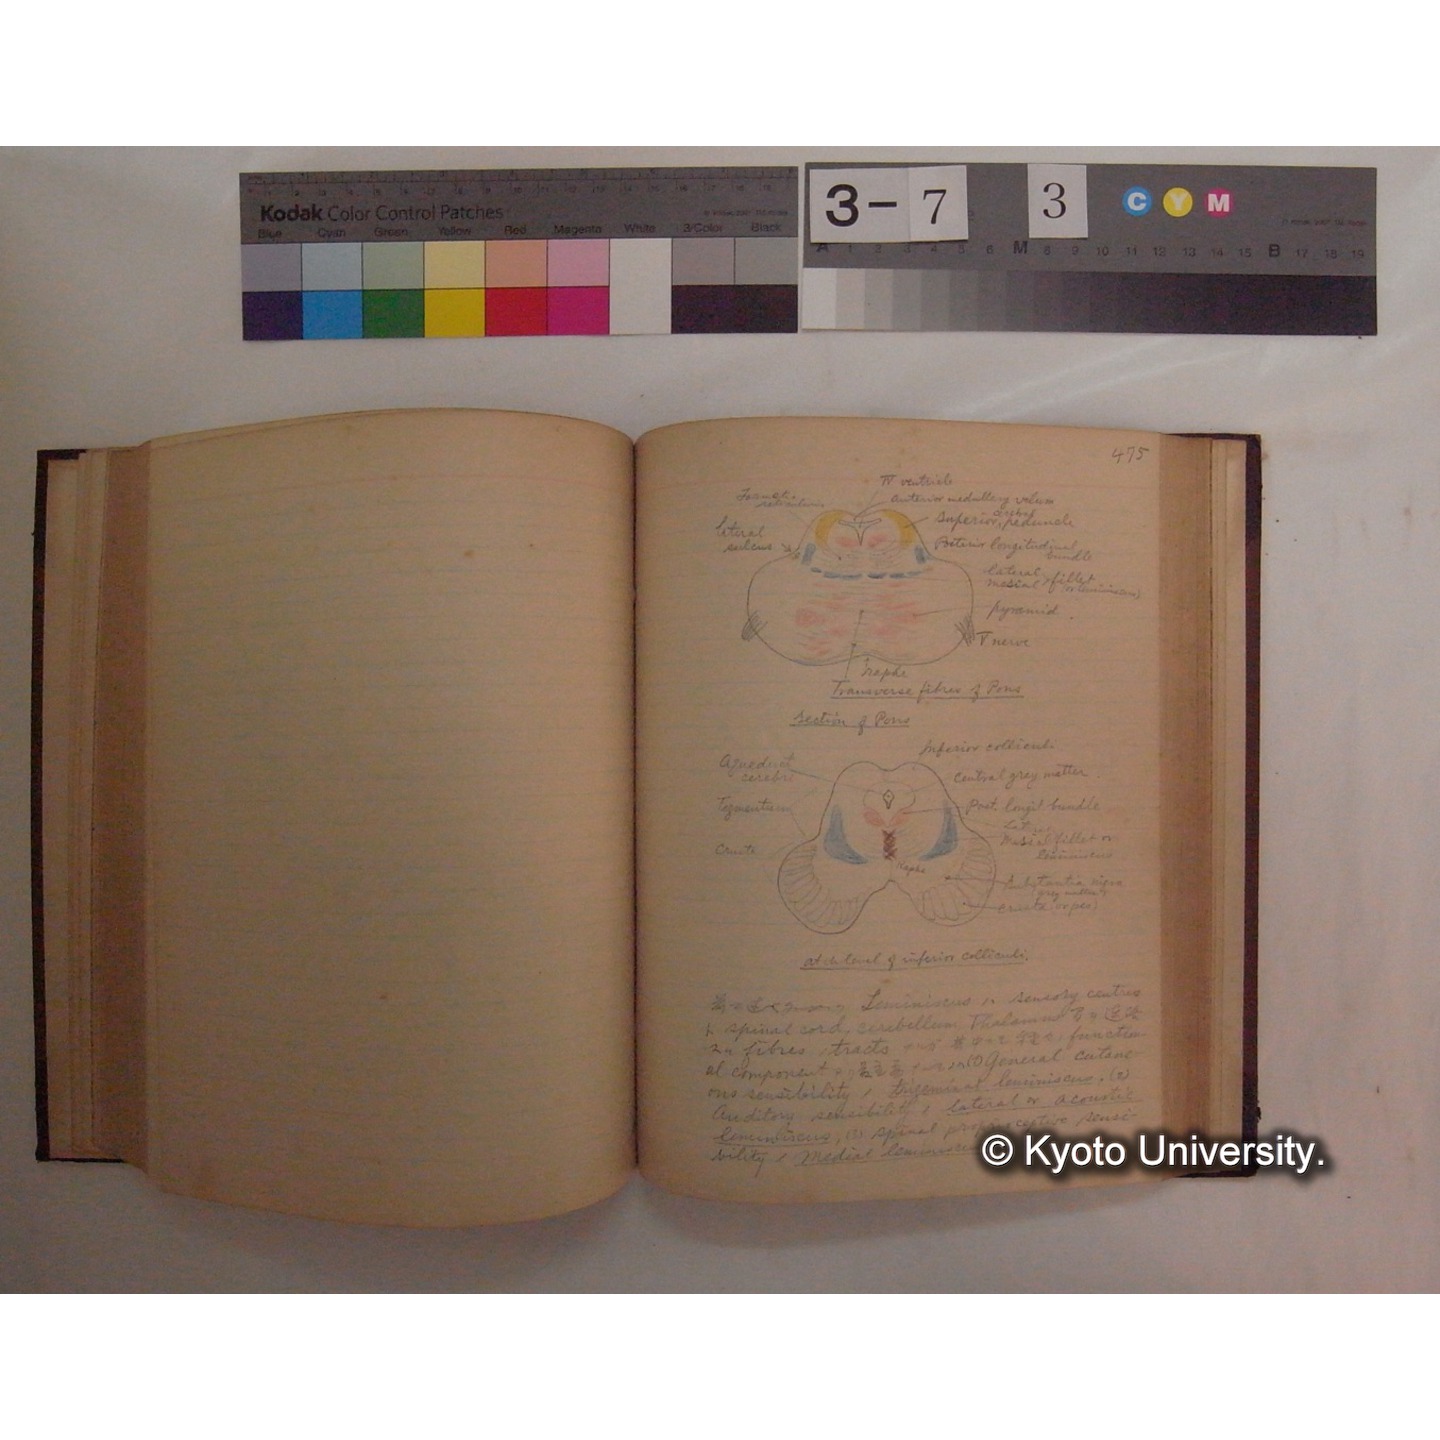 Kodak Color Control Patches
Blue Cyan Green Yellow Red Magenta White 3/Color Black
3-7 3 C Y M
A 1 2 3 4 5 6 M 8 9 10 11 12 13 14 15 B 17 18 19
475
IV ventricle
anterior medullary velum
Formatio
reticularis
cerebral
Superior, peduncle
lateral
sulcus
Posterior longitudinal
bundle
lateral
mesial fillet
(or leminiscus)
pyramid.
V nerve
raphe
Transverse fibres of Pons
Section of Pons
Inferior colliculi
Aqueduct
cerebri
Central grey matter.
Tegmentum
Post. longit bundle
Lat
Mesial fillet or
leminiscus
Crusta
Raphe
Substantia nigra
(grey matter)
Crusta (or pes)
at the level of inferior colliculi.
Leminiscus sensory centres
spinal cord, cerebellum Thalamus
fibres, tracts function
al component (1) General cutane-
ous sensibility, trigeminal leminiscus. (2)
Auditory sensibility, lateral or acoustic
leminiscus, (3) spinal proprioceptive sensi-
bility, Medial leminiscus
© Kyoto University.